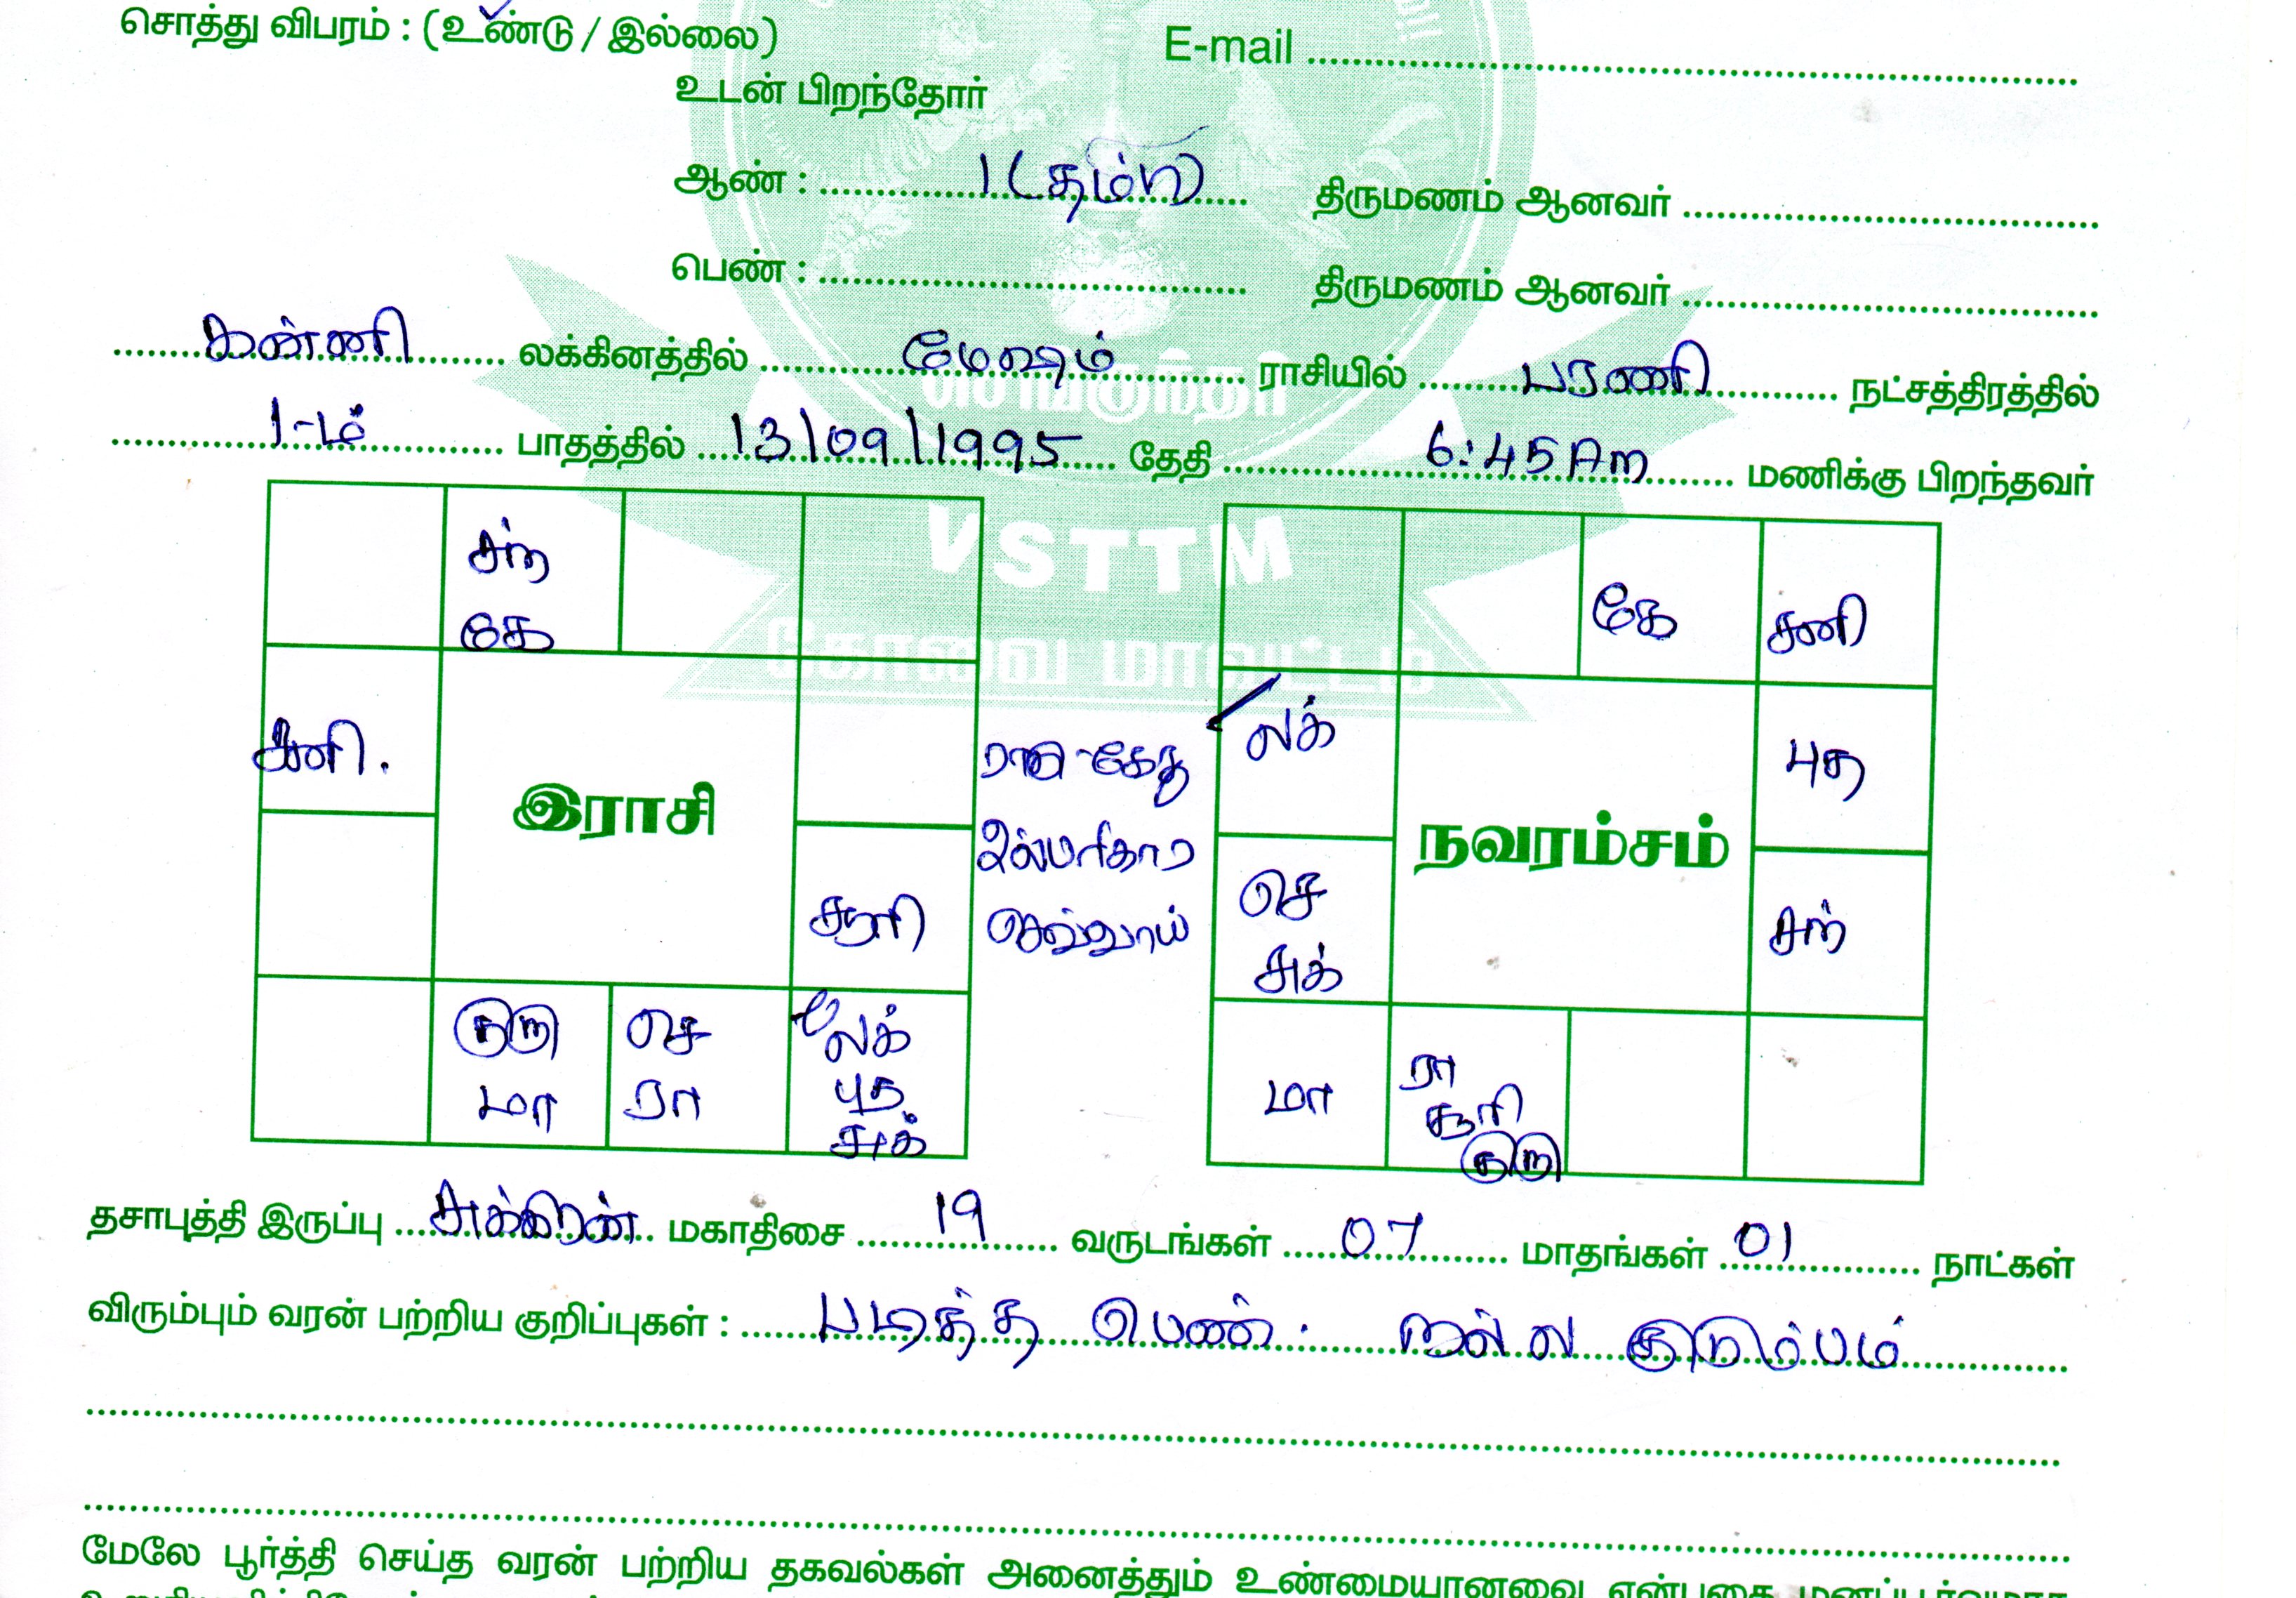 சொத்து விபரம் : (உண்டு / இல்லை)
E-mail
உடன் பிறந்தோர்
ஆண் : 1 (தம்பி) திருமணம் ஆனவர்
பெண் : திருமணம் ஆனவர்
கன்னி லக்கினத்தில் மேஷம் ராசியில் பரணி நட்சத்திரத்தில்
1-ம் பாதத்தில் 13/09/1995 தேதி 6:45 Am மணிக்கு பிறந்தவர்
VSTTM
கோவை மாவட்டம்
சந்
கே
சனி.
இராசி
சூரி
குரு
மா
செ
ரா
லக்
புத
சுக்
ராகு-கேது
செவ்வாய்
கே
சனி
லக்
புத
நவரம்சம்
செ
சுக்
சந்
மா
ரா
சூரி
குரு
தசாபுத்தி இருப்பு சுக்கிரன் மகாதிசை 19 வருடங்கள் 07 மாதங்கள் 01 நாட்கள்
விரும்பும் வரன் பற்றிய குறிப்புகள் : படித்த பெண். நல்ல குடும்பம்
மேலே பூர்த்தி செய்த வரன் பற்றிய தகவல்கள் அனைத்தும் உண்மையானவை என்பதை மனப்பூர்வமாக